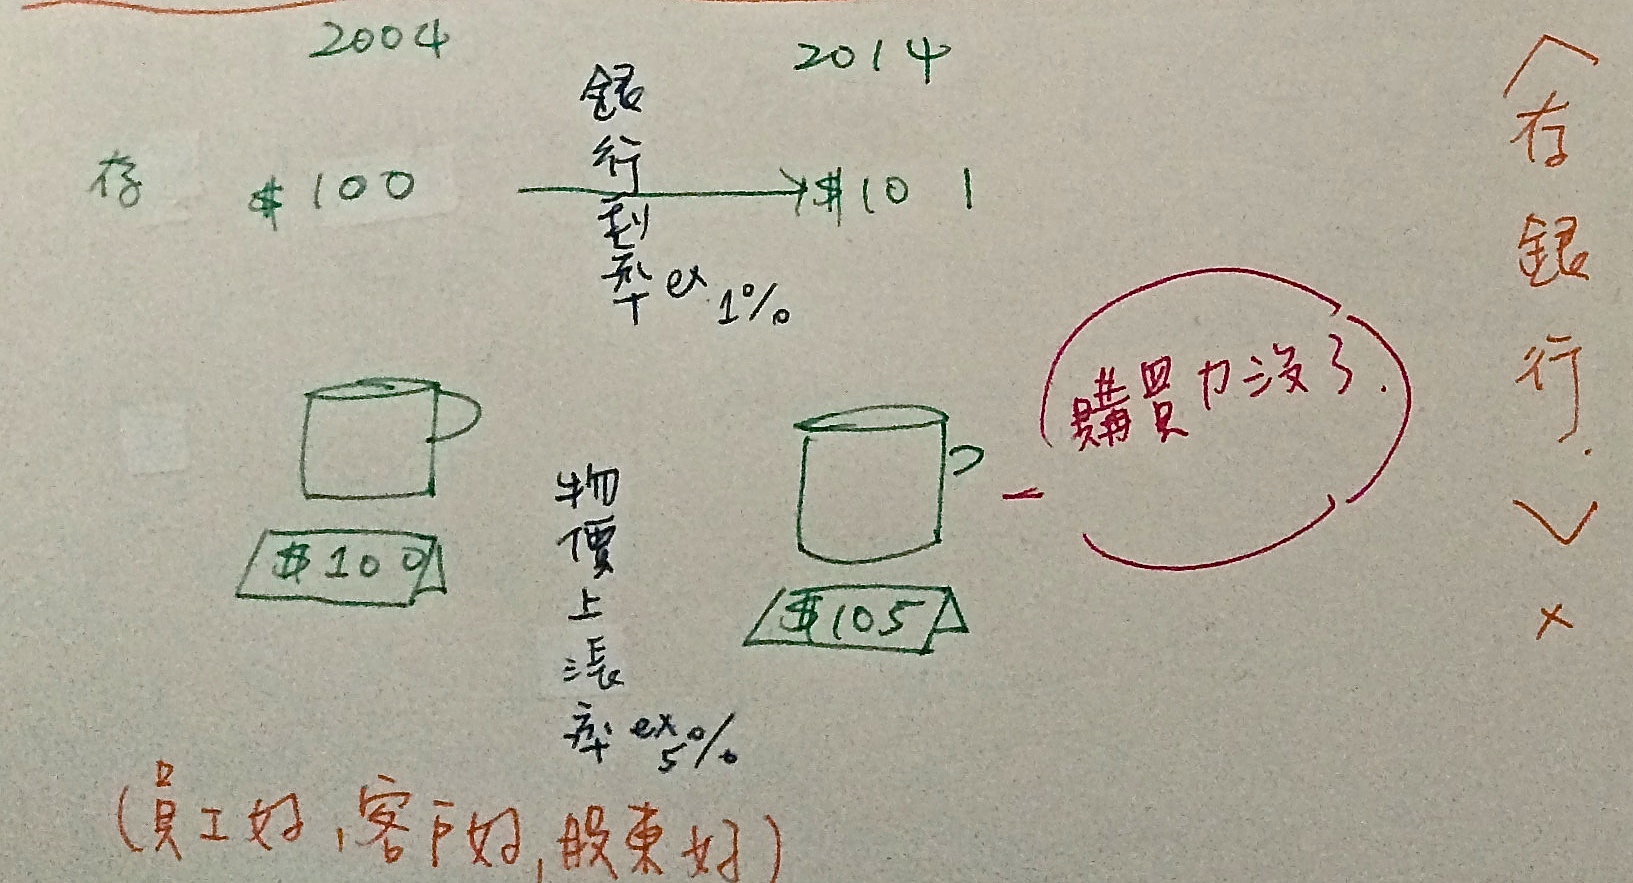 2004
2014
存
$100
銀行利率 ex. 1%
$101
$100
物價上漲率 ex 5%
$105
購買力沒了.
〈存銀行.〉
×
(員工好,客戶好,股東好)